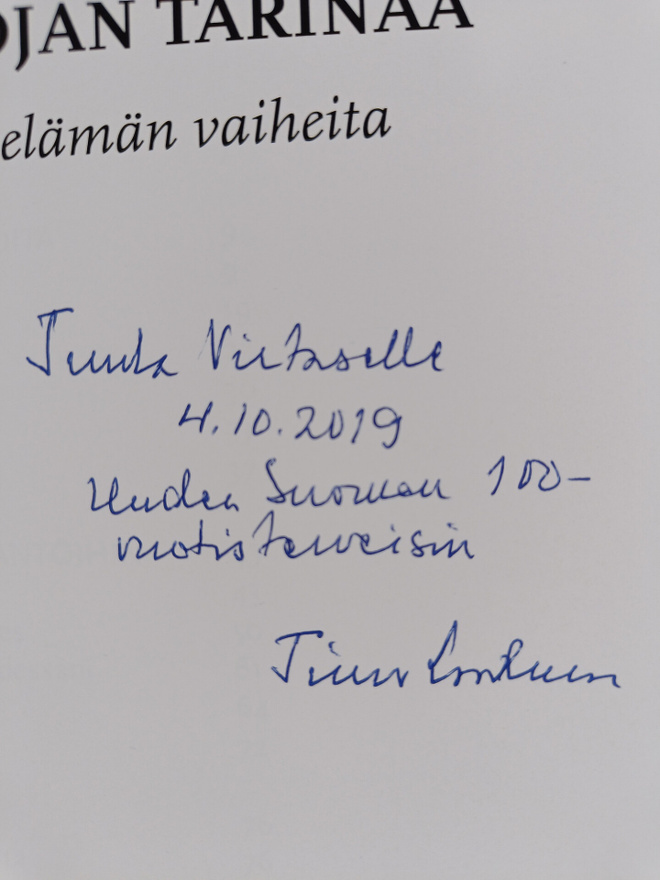 OJAN TARINAA
elämän vaiheita
Virtaselle
4.10.2019
Uuden Suomen 100-
vuotisterveisin
Timo